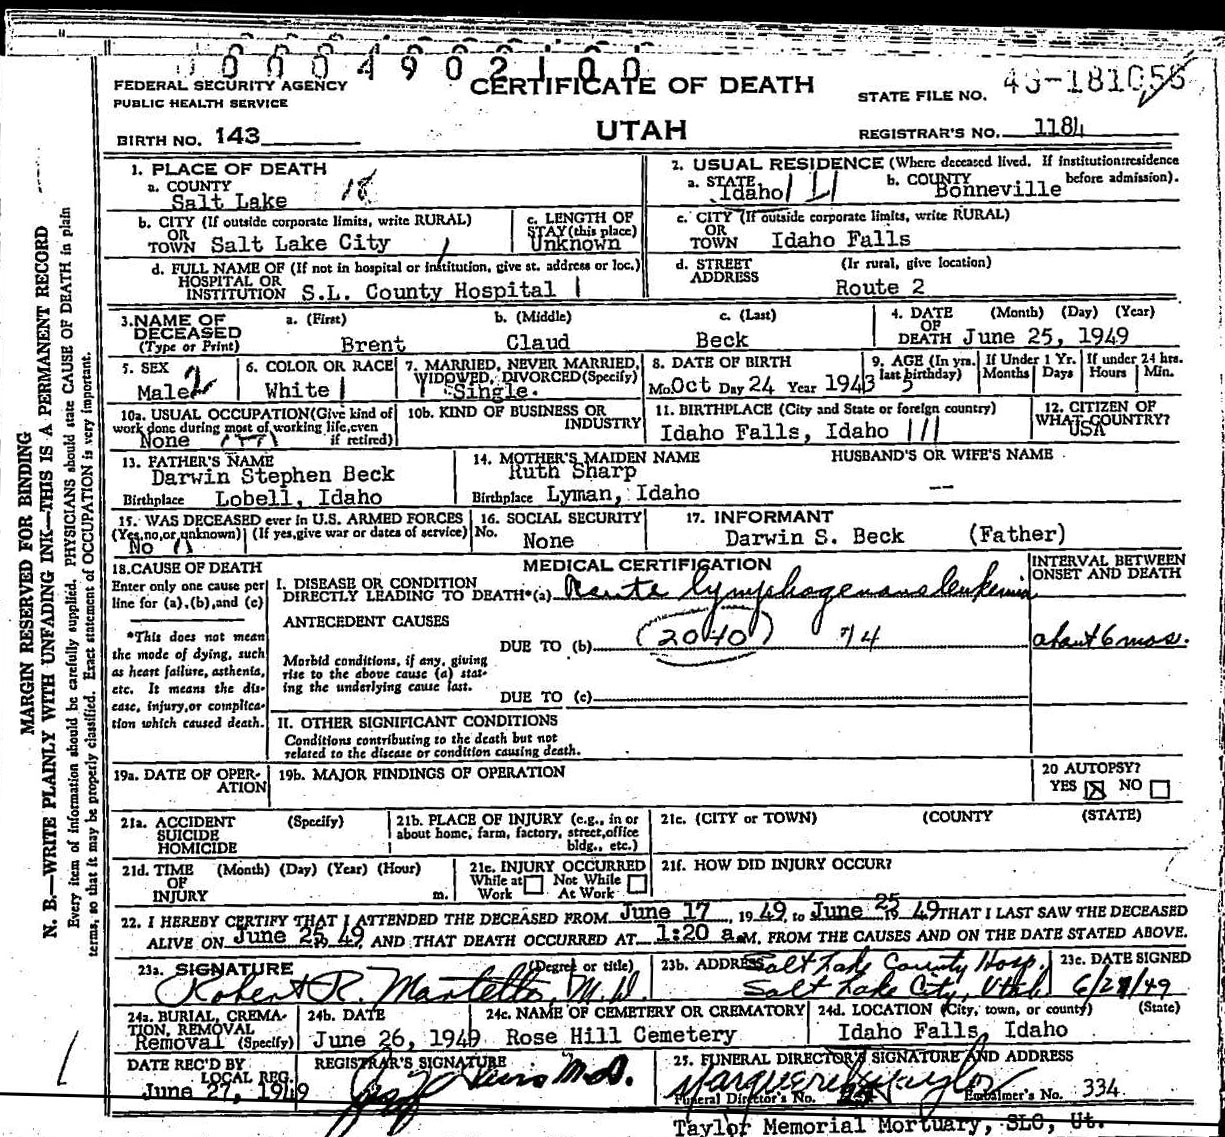 0 0 0 4 9 0 2 1 0 0
FEDERAL SECURITY AGENCY
PUBLIC HEALTH SERVICE
CERTIFICATE OF DEATH
STATE FILE NO.
BIRTH NO. 143
UTAH
REGISTRAR'S NO. 1184
1. PLACE OF DEATH
a. COUNTY
Salt Lake 18
2. USUAL RESIDENCE (Where deceased lived. If institution: residence before admission).
a. STATE Idaho
b. COUNTY Bonneville
b. CITY (If outside corporate limits, write RURAL)
OR
TOWN Salt Lake City
c. LENGTH OF
STAY (this place)
Unknown
c. CITY (If outside corporate limits, write RURAL)
OR
TOWN Idaho Falls
d. FULL NAME OF (If not in hospital or institution, give st. address or loc.)
HOSPITAL OR
INSTITUTION S.L. County Hospital
d. STREET (If rural, give location)
ADDRESS
Route 2
3. NAME OF DECEASED (Type or Print)
a. (First) b. (Middle) c. (Last)
Brent Claud Beck
4. DATE OF DEATH (Month) (Day) (Year)
June 25, 1949
5. SEX
Male 2
6. COLOR OR RACE
White 1
7. MARRIED, NEVER MARRIED,
WIDOWED, DIVORCED (Specify)
Single.
8. DATE OF BIRTH
Mo. Oct Day 24 Year 1943
9. AGE (In yrs. last birthday)
5
If Under 1 Yr.
Months Days
If under 24 hrs.
Hours Min.
10a. USUAL OCCUPATION (Give kind of work done during most of working life, even if retired)
None
10b. KIND OF BUSINESS OR INDUSTRY
11. BIRTHPLACE (City and State or foreign country)
Idaho Falls, Idaho
12. CITIZEN OF WHAT COUNTRY?
USA
13. FATHER'S NAME
Darwin Stephen Beck
Birthplace Lobell, Idaho
14. MOTHER'S MAIDEN NAME
Ruth Sharp
Birthplace Lyman, Idaho
HUSBAND'S OR WIFE'S NAME
--
15. WAS DECEASED ever in U.S. ARMED FORCES
(Yes, no, or unknown) (If yes, give war or dates of service)
No
16. SOCIAL SECURITY No.
None
17. INFORMANT
Darwin S. Beck (Father)
18. CAUSE OF DEATH
Enter only one cause per line for (a), (b), and (c)
*This does not mean the mode of dying, such as heart failure, asthenia, etc. It means the disease, injury, or complication which caused death.
MEDICAL CERTIFICATION
INTERVAL BETWEEN ONSET AND DEATH
I. DISEASE OR CONDITION
DIRECTLY LEADING TO DEATH*(a) Acute lymphogenous leukemia
ANTECEDENT CAUSES
DUE TO (b) (2040) 74
about 6 mos.
Morbid conditions, if any, giving rise to the above cause (a) stating the underlying cause last.
DUE TO (c)
II. OTHER SIGNIFICANT CONDITIONS
Conditions contributing to the death but not related to the disease or condition causing death.
19a. DATE OF OPERATION
19b. MAJOR FINDINGS OF OPERATION
20 AUTOPSY?
YES X NO
21a. ACCIDENT (Specify)
SUICIDE
HOMICIDE
21b. PLACE OF INJURY (e.g., in or about home, farm, factory, street, office bldg., etc.)
21c. (CITY or TOWN) (COUNTY (STATE)
21d. TIME (Month) (Day) (Year) (Hour)
OF
INJURY m.
21e. INJURY OCCURRED
While at Work Not While At Work
21f. HOW DID INJURY OCCUR?
22. I HEREBY CERTIFY THAT I ATTENDED THE DECEASED FROM June 17, 1949, to June 25 1949 THAT I LAST SAW THE DECEASED
ALIVE ON June 25, 49 AND THAT DEATH OCCURRED AT 1:20 a.M. FROM THE CAUSES AND ON THE DATE STATED ABOVE.
23a. SIGNATURE (Degree or title)
Robert R. Martello, M.D.
23b. ADDRESS Salt Lake County Hosp.
Salt Lake City, Utah
23c. DATE SIGNED
24a. BURIAL, CREMATION, REMOVAL (Specify)
Removal
24b. DATE
June 26, 1949
24c. NAME OF CEMETERY OR CREMATORY
Rose Hill Cemetery
24d. LOCATION (City, town, or county) (State)
Idaho Falls, Idaho
DATE REC'D BY LOCAL REG.
June 27, 1949
REGISTRAR'S SIGNATURE
M.D.
25. FUNERAL DIRECTOR'S SIGNATURE AND ADDRESS
Marguerite Taylor
Funeral Director's No. Embalmer's No. 334
Taylor Memorial Mortuary, SLC, Ut.
MARGIN RESERVED FOR BINDING
N. B.—WRITE PLAINLY WITH UNFADING INK—THIS IS A PERMANENT RECORD
Every item of information should be carefully supplied. PHYSICIANS should state CAUSE OF DEATH in plain
terms, so that it may be properly classified. Exact statement of OCCUPATION is very important.